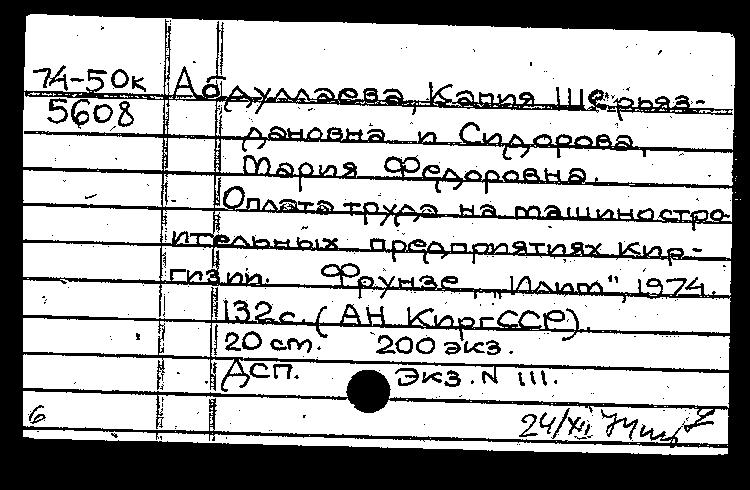 74-50к
5608
Абдуллаева, Капия Шерьяз-
дановна и Сидорова,
Мария Федоровна.
Оплата труда на машиностро-
ительных предприятиях Кир-
гизии. Фрунзе, „Илим", 1974.
132с. (АН КиргССР).
20 см. 200 экз.
ДСП. Экз. N 111.
6 24/XII